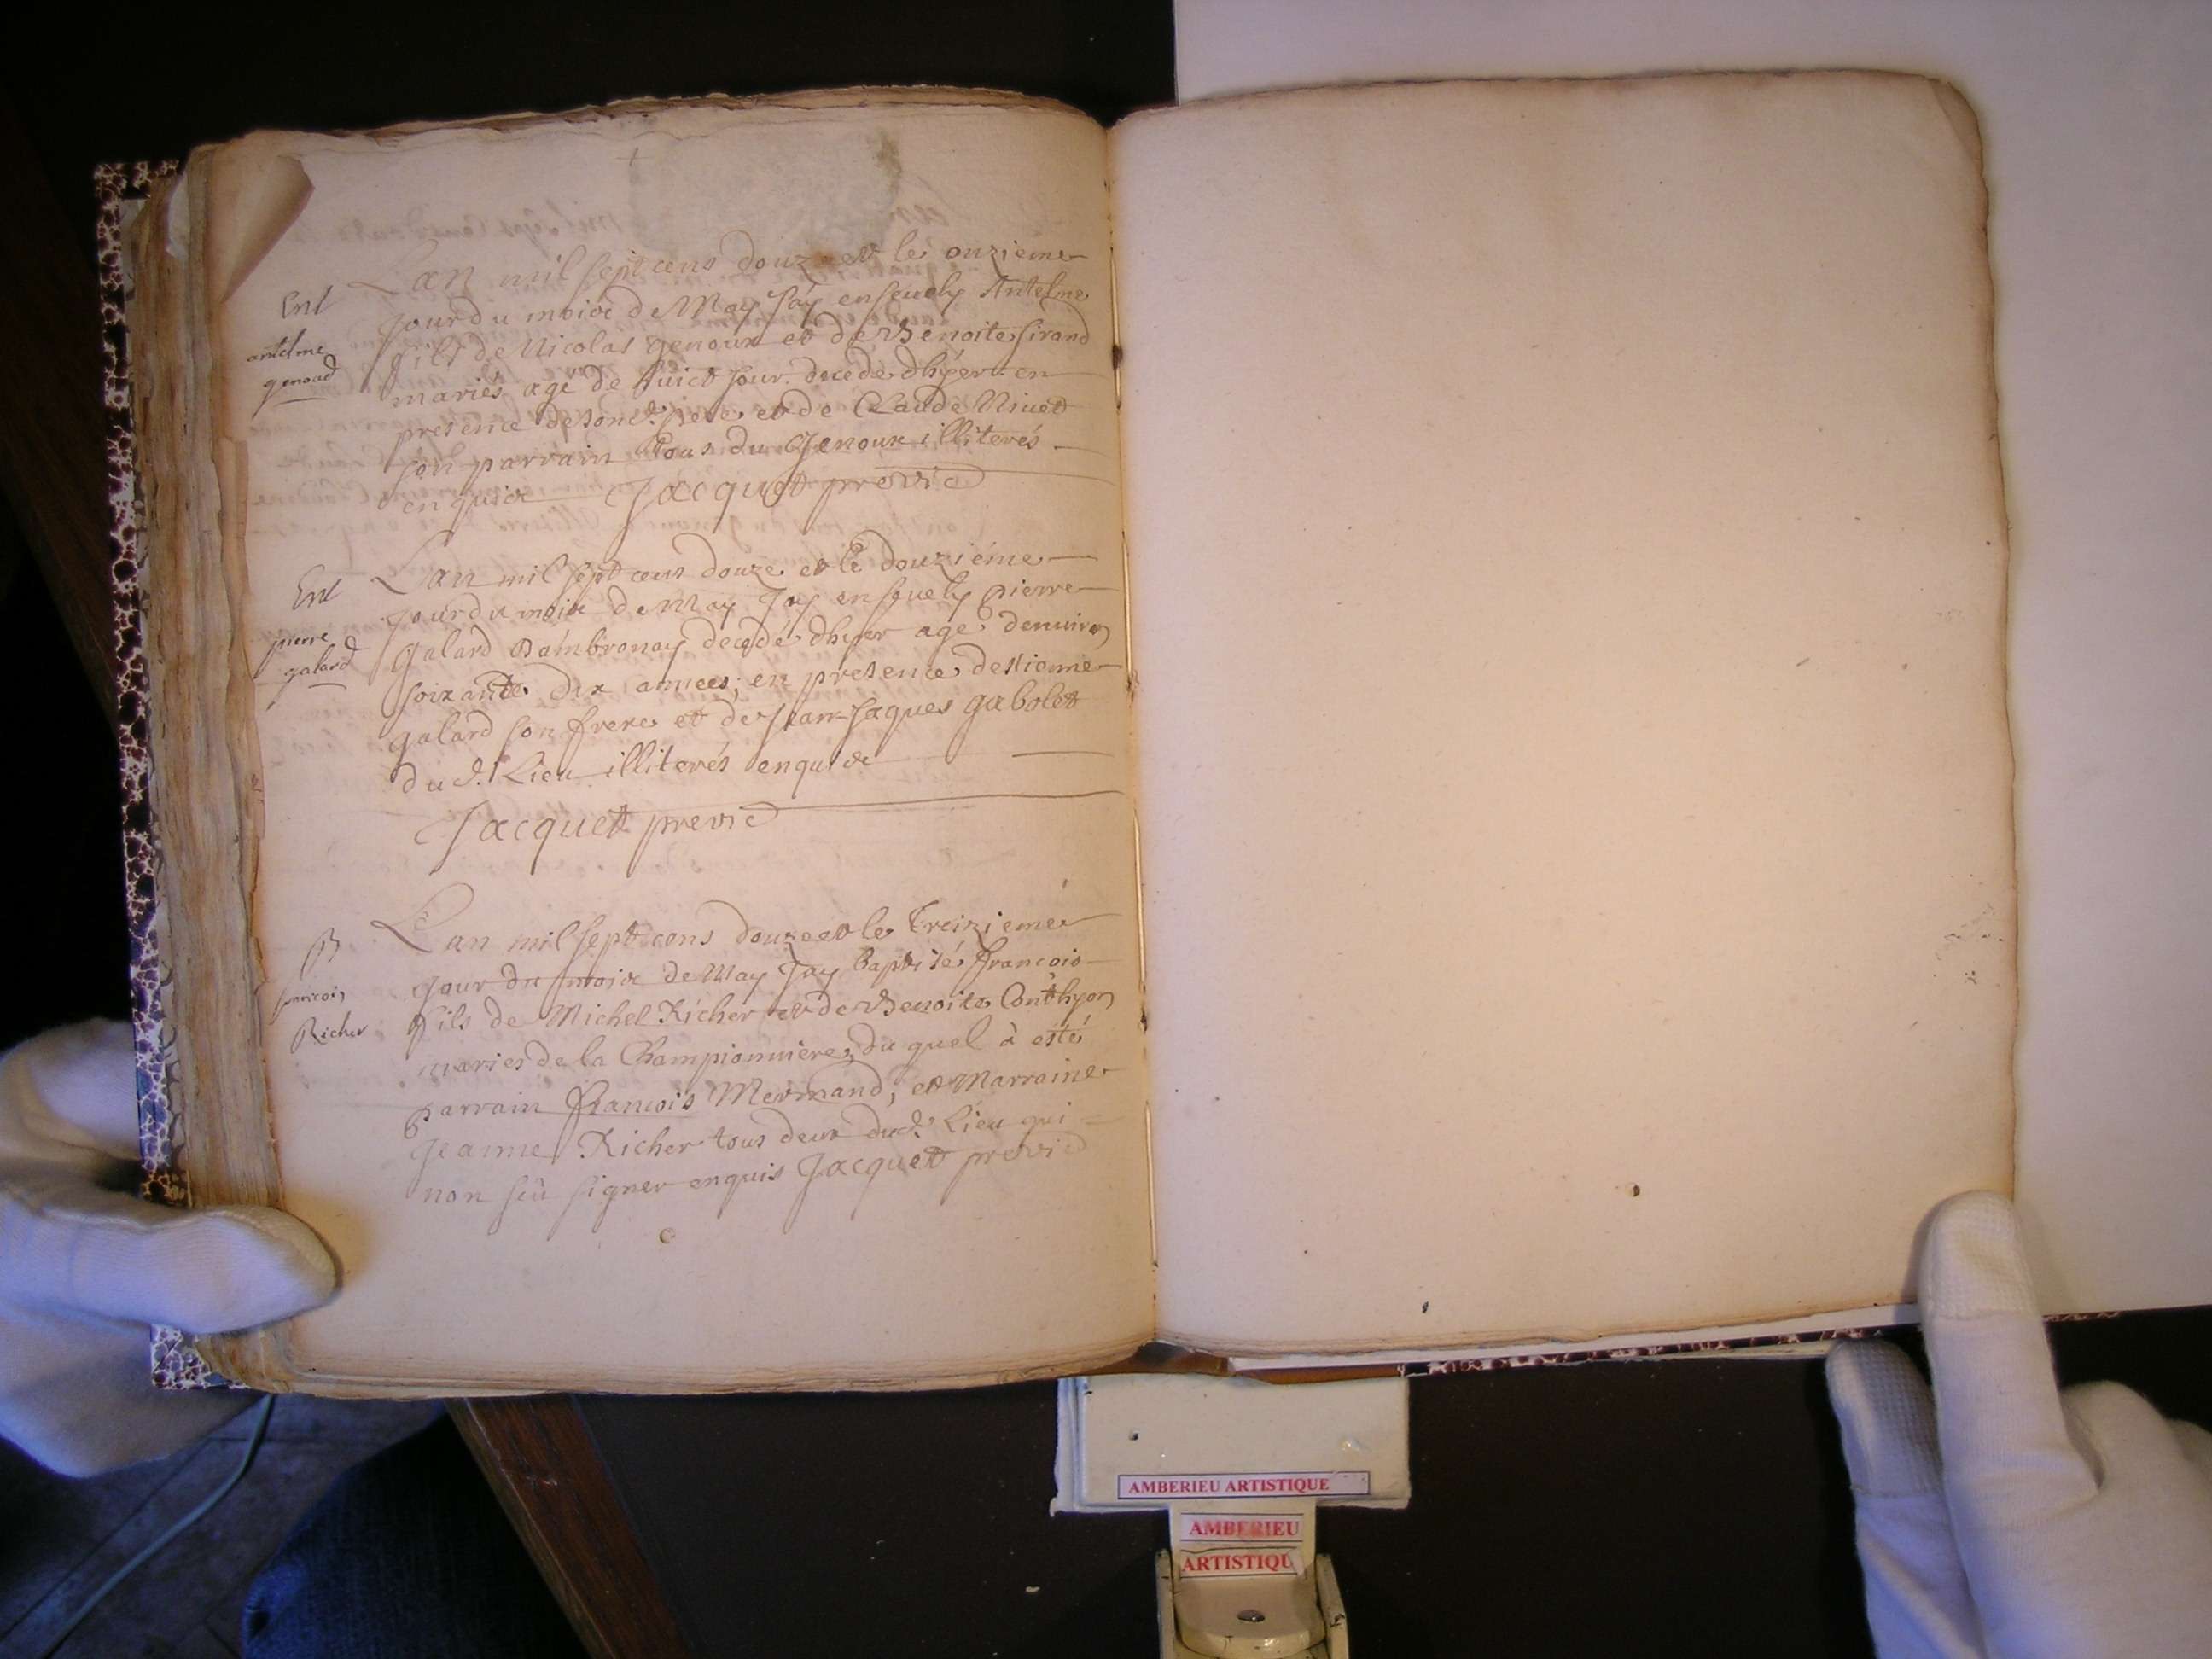 Ent
antelme
genoud
Lan mil sept cens douze et le onzieme
jour du mois de May Jay ensevely Antelme
fils de Nicolas genoux et de Benoite Sirand
mariés age de huict jour decede dhyer en
presence de son d. pere et de Claude Nivet
son parrain tous du Genoux illiterés
enquis Jacquet previc
Ent
pierre
galard
Lan mil sept cens douze et le douziéme
jour du mois de May Jay ensevely pierre
Galard Dambronay decedé dhyer age denviron
soixante dix annees; en presence destienne
galard son frere et de Jean Jaques gabolet
du d. Lieu illiterés enquis
Jacquet previc
B
francois
Richer
Lan mil sept cens douze et le Treizieme
jour du mois de May Jay baptisé francois
fils de Michel Richer et de Benoite Conthyon
maries de la Championniere, du quel à esté
parrain francois Mermand, et Marraine
Jeanne Richer tous deux dud. Lieu qui
non seû signer enquis Jacquet previc
AMBERIEU ARTISTIQUE
AMBERIEU
ARTISTIQU